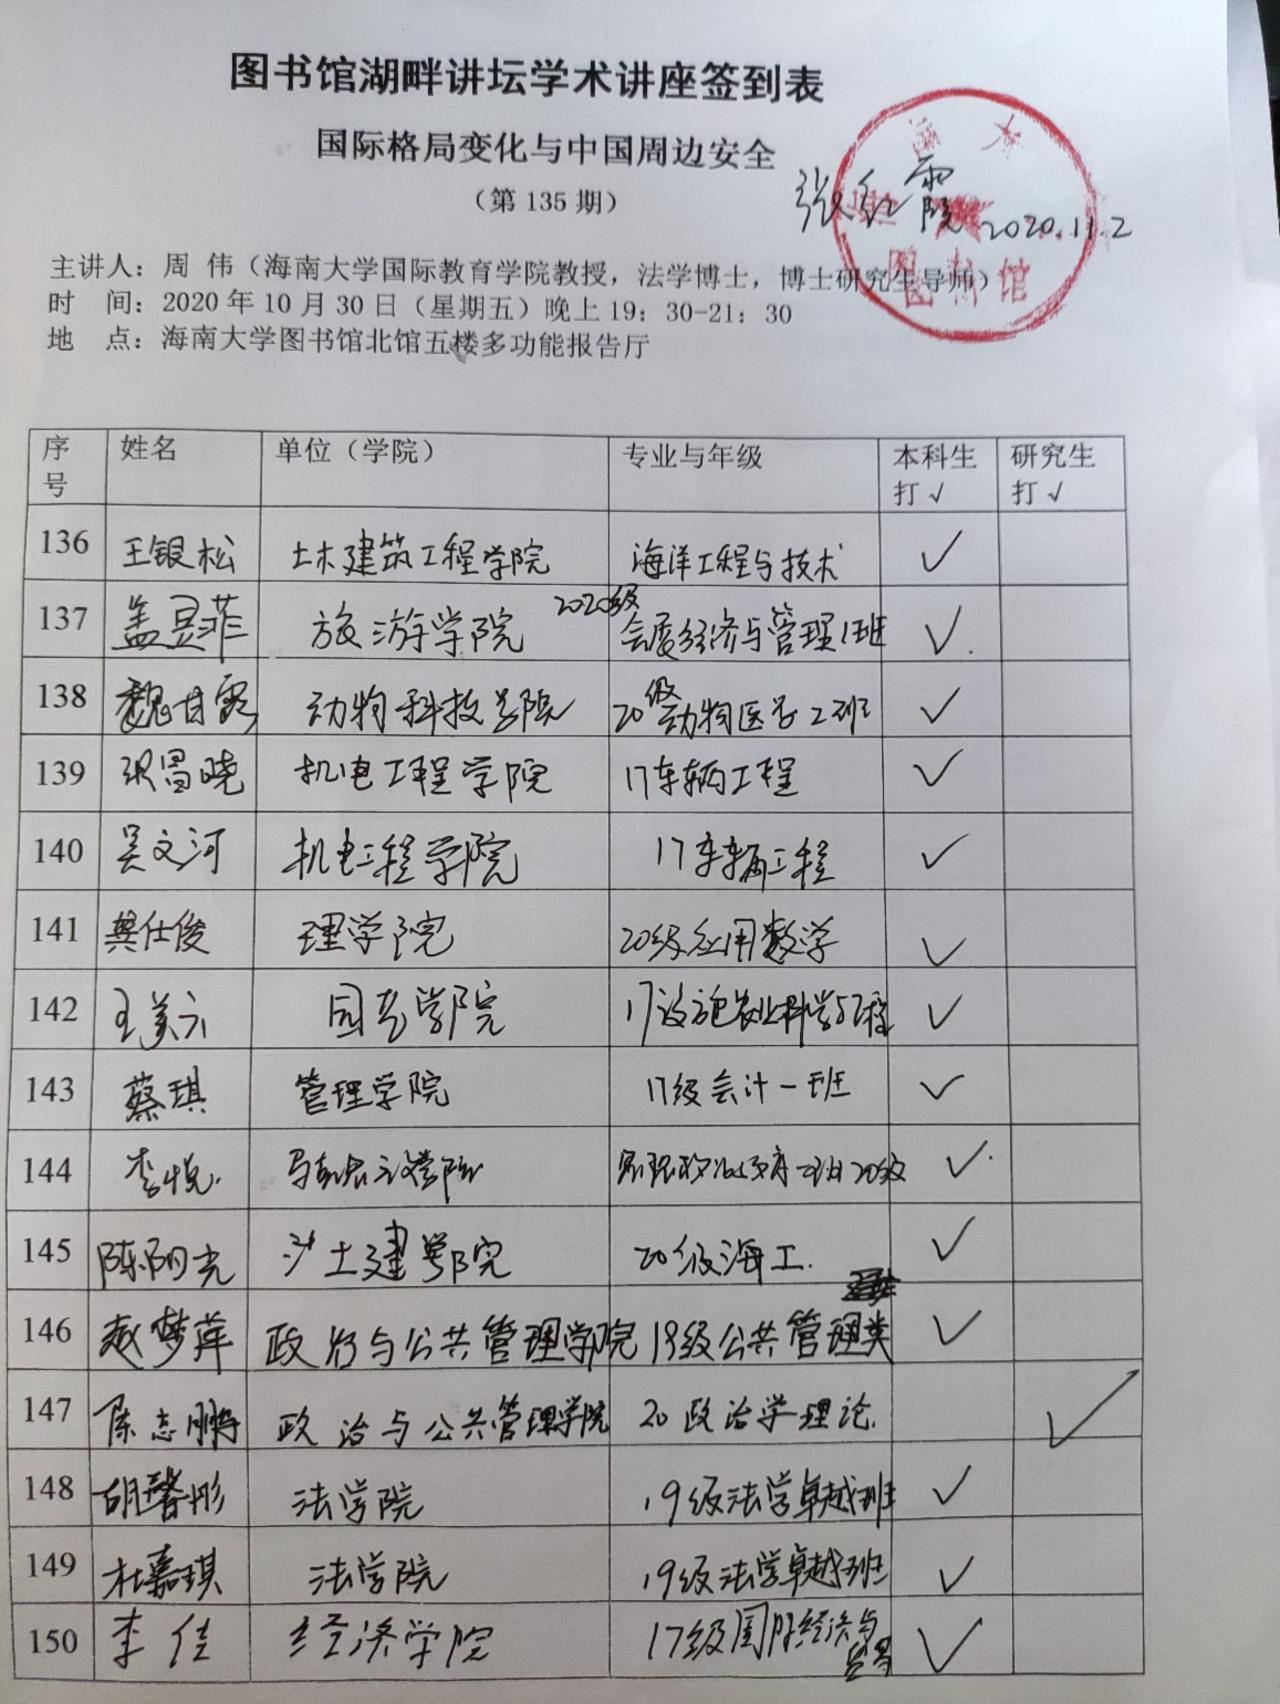 图书馆湖畔讲坛学术讲座签到表
国际格局变化与中国周边安全
（第 135 期）
张红霞 2020.11.2
图书馆
主讲人：周 伟（海南大学国际教育学院教授，法学博士，博士研究生导师）
时 间：2020 年 10 月 30 日（星期五）晚上 19：30-21：30
地 点：海南大学图书馆北馆五楼多功能报告厅
序号 姓名 单位（学院） 专业与年级 本科生打√ 研究生打√
136 王银松 土木建筑工程学院 海洋工程与技术 ✓
137 盖灵菲 旅游学院 2020级会展经济与管理1班 ✓
138 魏甘露 动物科技学院 20级动物医学2班 ✓
139 张昌晓 机电工程学院 17车辆工程 ✓
140 吴文河 机电工程学院 17车辆工程 ✓
141 樊仕俊 理学院 20级应用数学 ✓
142 王美 园艺学院 17设施农业科学与工程 ✓
143 蔡琪 管理学院 17级会计一班 ✓
144 李悦 马克思主义学院 思想政治教育 20级 ✓
145 陈阳光 土建学院 20级海工 ✓
146 赵梦萍 政治与公共管理学院 19级公共管理类 ✓
147 陈志鹏 政治与公共管理学院 20政治学理论 ✓
148 胡馨彤 法学院 19级法学卓越班 ✓
149 杜嘉琪 法学院 19级法学卓越班 ✓
150 李佳 经济学院 17级国际经济与贸易 ✓